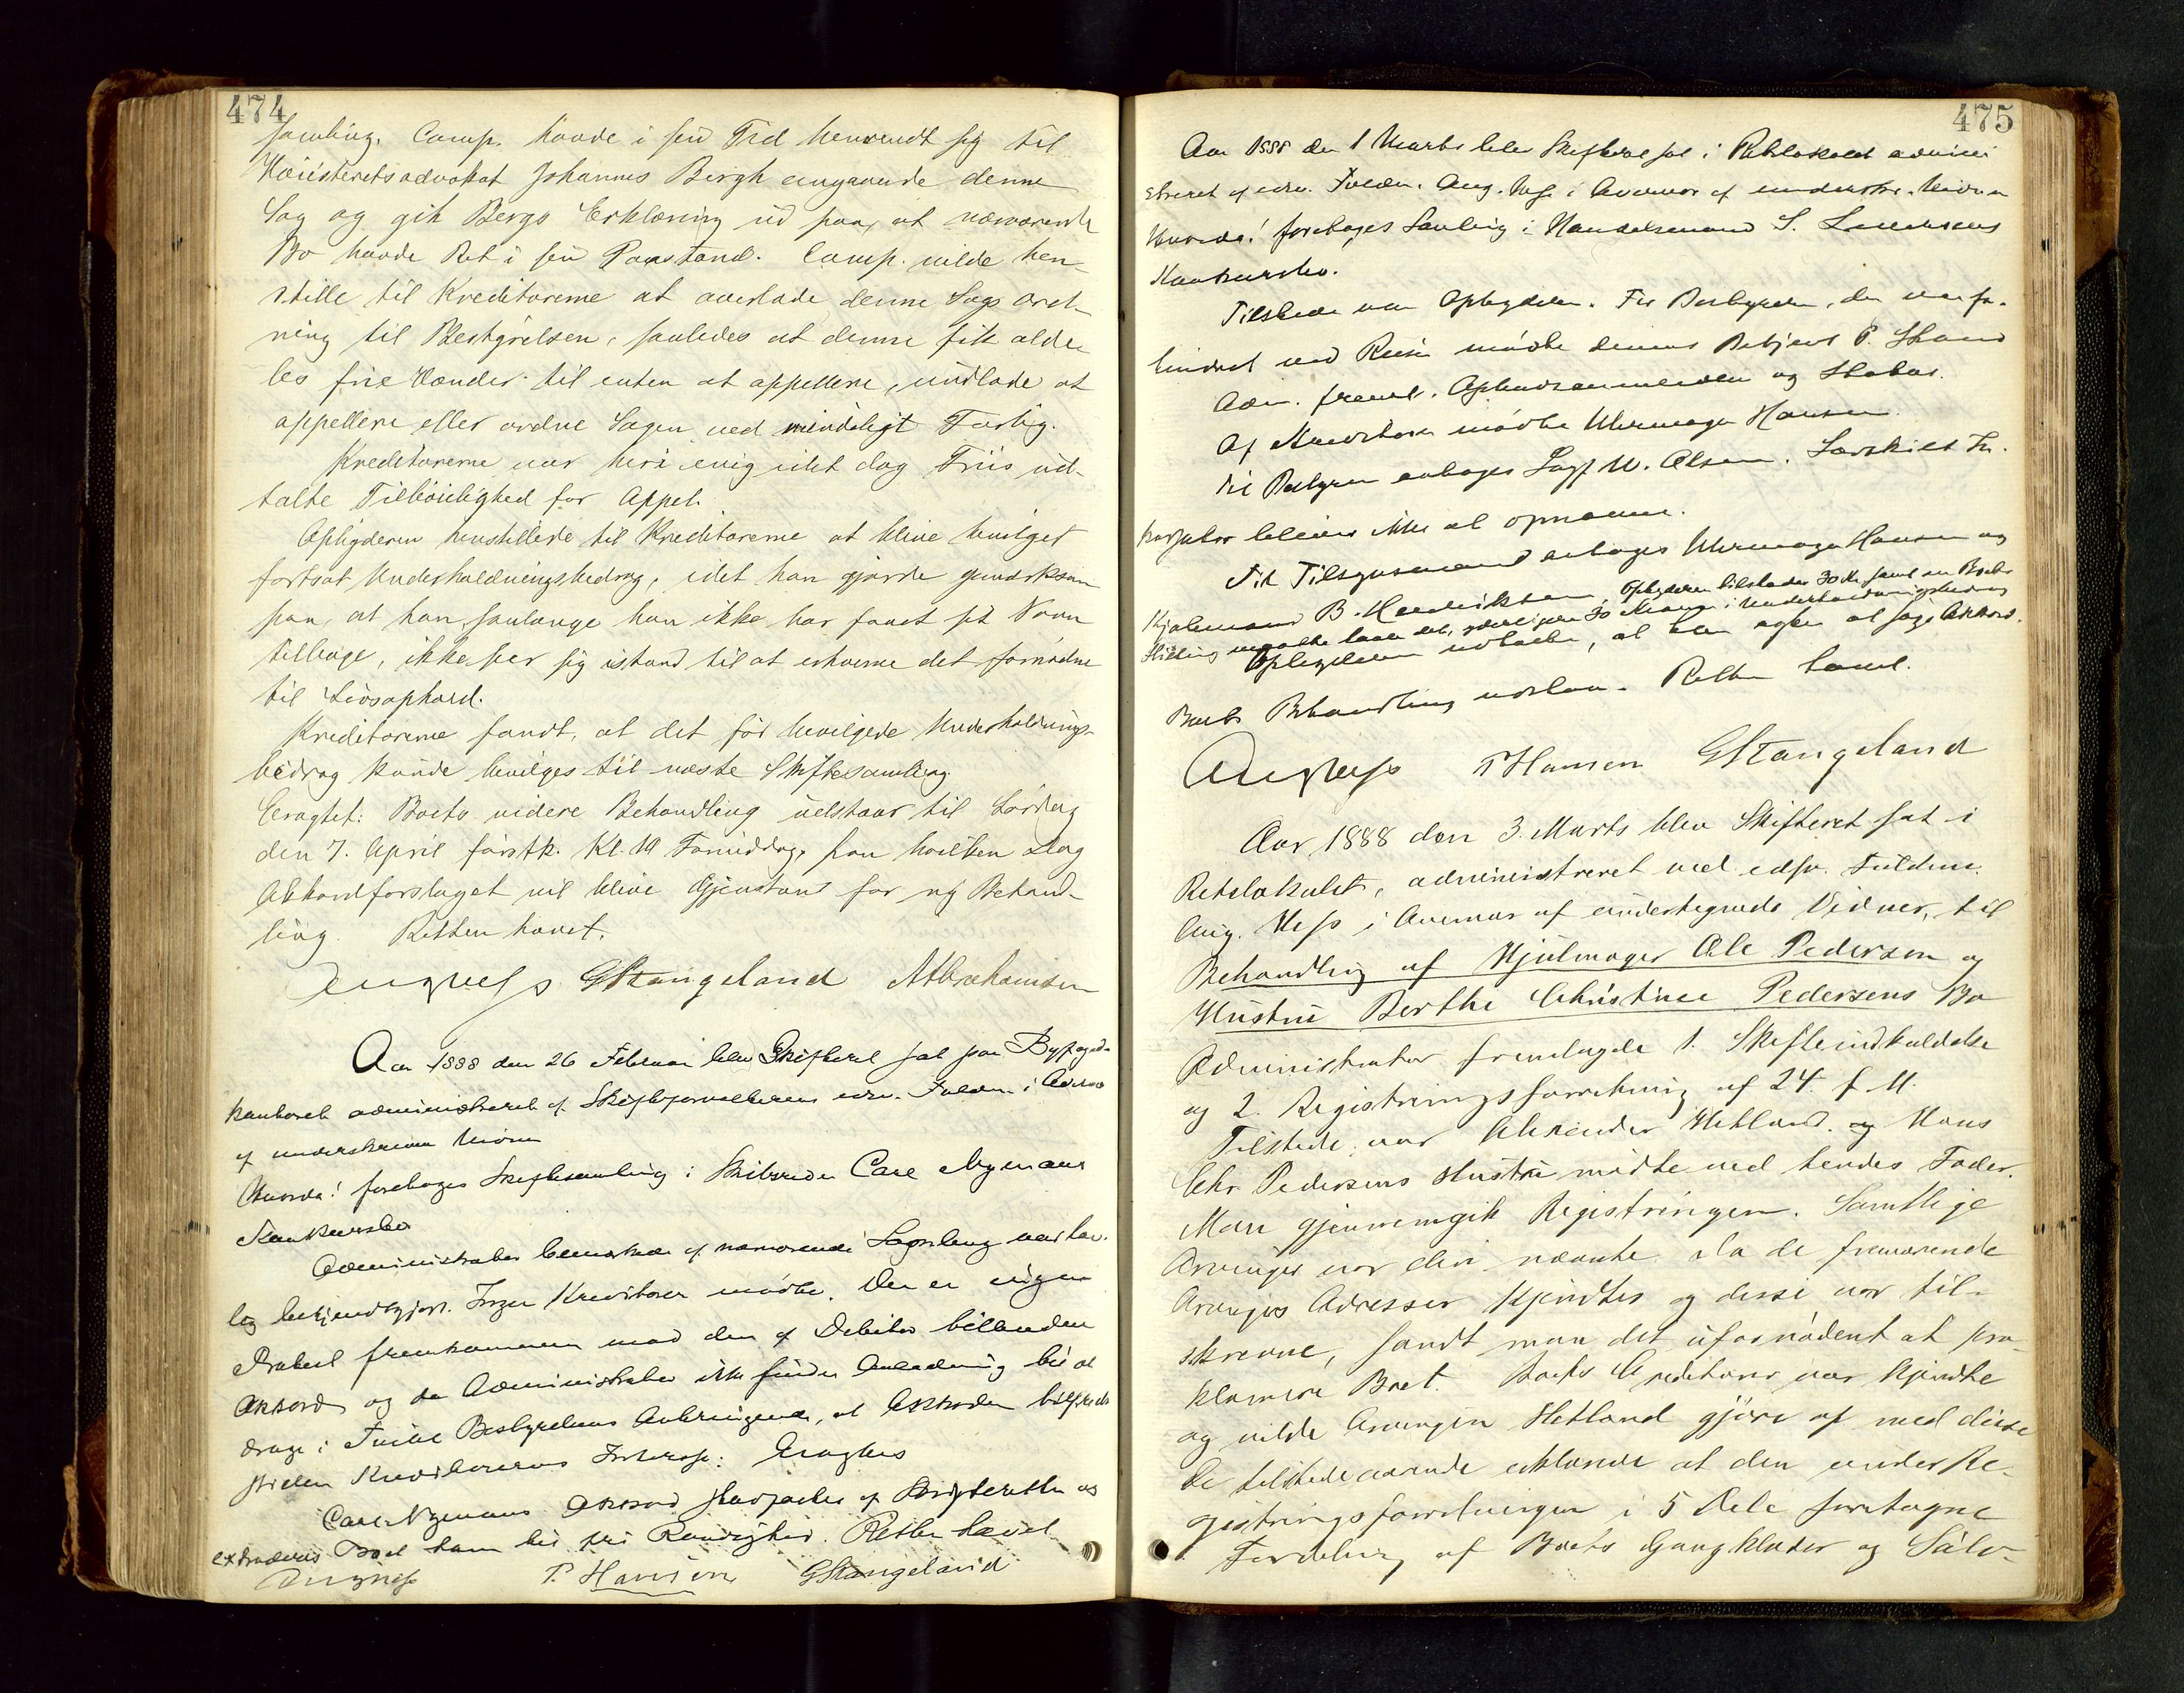 474
samling. Comp. havde i sin Tid henvendt sig til
Höiesteretsadvokat Johannes Bergh angaaende denne
Sag og gik Berghs Erklæring ud paa, at nærværende
Bo havde Ret i sin Paastand. Comp. vilde hen-
stille til Kreditorerne at overlade denne Sags Ord-
ning til Bestyrelsen, saaledes at denne fik alde-
les frie Hænder til enten at appellere, undlade at
appellere eller ordne Sagen ved mindeligt Forlig.
Kreditorerne var heri enig idet dog Friis ud-
talte Tilböielighed for Appel.
Opbyderen henstillede til Kreditorerne at blive bevilget
fortsat Underholdningsbidrag, idet han gjorde opmærksom
paa, at han, saalænge han ikke har faaet sit Navn
tilbage, ikke ser sig istand til at erhverve det fornødne
til Livsophold.
Kreditorerne fandt, at det för bevilgede Underholdnings-
bidrag kunde bevilges til næste Skiftesamling.
Eragtet: Boets videre Behandling udstaar til Lördag
den 7. April förstk. Kl. 10 Formiddag, paa hvilken Dag
Akkordforslaget vil blive Gjenstand for ny Behand-
ling. Retten hævet.
Aug Hess GStangeland Abrahamsen
Aar 1888 den 26 Februar blev Skifteret sat paa Byfoged-
kontoret administreret af Skifteforvalterens edsv. Fuldm. i Overvær
af underskrevne Vidner
Hvorda! foretoges Skiftesamling i Skibsreder Carl Nymans
Konkursbo
Administrator bemærkede at nærværende Samling var lov-
lig bekjendtgjort. Ingen Kreditorer mödte. Der er ingen
Protest fremkommen mod den af Debitor tilbudte
Akkord og da Administrator ikke finder Anledning til at
drage i Tvivl Bestyrelsens Anbringende, at Akkorden tilfreds-
stiller Kreditorernes Interesse: Eragtes
Carl Nymans Akkord stadfæstes af Skifteretten og
extraderes Boet ham til fri Raadighed. Retten hævet.
Aug Hess P. Hansen GStangeland
475
Aar 1888 den 1 Marts blev Skifteret sat i Retslokalet admini-
streret af edsv. Fuldm. Aug. Hess i Overvær af underskr. Vidner
Hvorda! foretoges Samling i Handelsmand S.
Konkursbo.
Tilstede var Opbyderen. For Bestyreren, der var for-
hindret ved Reise mödte dennes Betjent P.
Adm. freml. Opbudsanmeldelse og Status.
Af Kreditorer mödte Uhrmager Hansen.
Til Bestyrer antoges Sagf. W. Olsen. Særskilt In-
kassator bliver ikke at opnævne.
Til Tilsynsmænd antoges Uhrmager Hansen og
Kjøbmand B. Hendriksen. Opbyderen tilstodes 30 Kr samt om Boets
Stilling maatte taale det, yderligere 30 Kroner i Underholdningsbidrag
Opbyderen udtalte, at han agter at søge Akkord.
Boets Behandling udstaar. Retten hævet.
Aug Hess PHansen GStangeland
Aar 1888 den 3. Marts blev Skifteret sat i
Retslokalet, administreret ved edsv. Fuldm.
Aug. Hess i Overvær af undertegnede Vidner, til
Behandling af Hjulmager Ole Pedersen og
Hustru Berthe Christine Pedersens Bo
Administrator fremlagde 1. Skifteindkaldelse
og 2. Registreringsforretning af 24. f. M.
Tilstede var Alexander Hetland og Hans
Chr. Pedersens Hustru mödte ved hendes Fader.
Man gjennemgik Registringen. Samtlige
Arvinger var deri nævnte. Da de fraværende
Arvinges Adresser kjendtes og disse var til-
skrevne, fandt man det ufornødent at pro-
klamere Boet. Boets Kreditorer var kjendte
og vilde Arvingen Hetland gjöre af med disse
De tilstedeværende erklærede at den under Re-
gistringsforretningen i 5 Dele foretagne
Fordeling af Boets Gangklæder og Sölv-